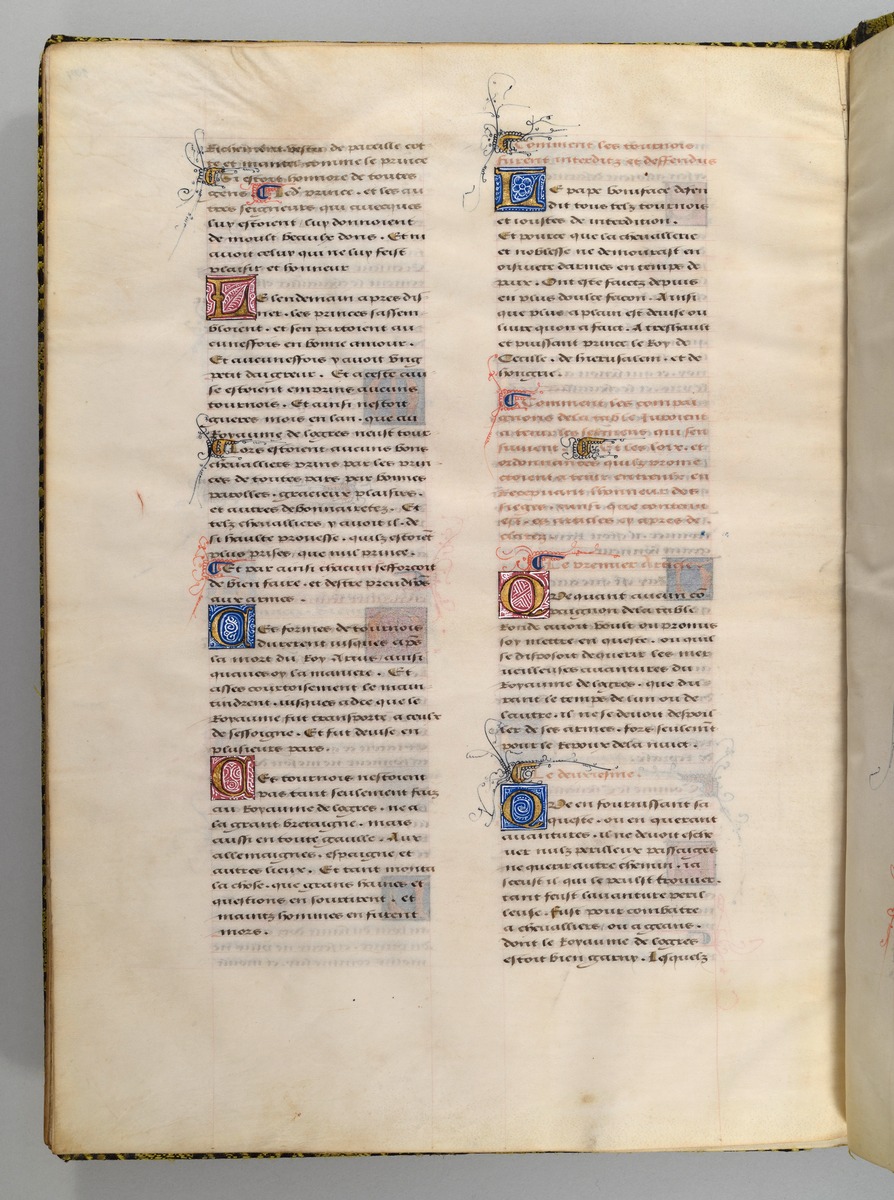 Richement vestu de pareille cot
te et mantel comme le prince
Si estoit honnore de toutes
gens Led prince. et les au
tres seigneurs qui avecques
luy estoient / luy donnoient
de moult beaulx dons. Et ni
avoit celuy qui ne luy feist
plaisir et honneur
LE lendemain apres dis
ner. les princes sassem
bloient. et sen partoient au
cuneffois en bonne amour.
Et aucuneffois y avoit ung
petit daigreur. Et a ceste cau
se estoient emprins aucuns
tournois. Et ainsi nestoit
gueres mois en lan. que au
Royaume de logres neust tour
Alors estoient aucuns bons
chevalliers prins par les prin
ces de toutes pars par bonnes
parolles. gracieux plaisirs.
et autres debonnairetez. Et
telz chevalliers y avoit il. de
si haulte prouesse. quilz estoiēt
plus prises / que nul prince.
Et par ainsi chacun sefforcoit
de bien faire. et destre preudhōs
aux armes.
CEs formes de tournois
durerent jusques aps
la mort du Roy Artus / ainsi
que aves oy la maniere. Et
asses courtoisement le main
tindrent. jusques adce que le
Royaume fut transporte a ceulx
de sessoigne. Et fut devise en
plusieurs pars.
CEs tournois nestoient
pas tant seulement faiz
au Royaume de logres. ne a
la grant bretaigne. mais
aussi en toute gaulle. Aux
allemaignes. espaigne et
autres lieux. Et tant monta
la chose. que grans haines et
questions en sourtirent. et
maintz hommes en furent
mors.
Comment les tournois
furent interditz et deffendus
LE pape boniface defen
dit tous telz tournois
et joustes de interdition.
Et pource que la chevallerie
et noblesse ne demourast en
oisivete darmes en temps de
paix. Ont este faictz depuis
en plus doulce facon. Ainsi
que plus a plain est devise ou
livre quon a faict. A treshault
et puissant prince le Roy de
Cecille. de hierusalem. et de
hongrie.
Comment les compai
gnons de la table juroient
a
les sermens qui sen
suivent Et les loix. et
ordonnances quilz prome
ctoient a tenir
en
Recepvant lhonneur des
sieges. ainsi que contenu
est. es articles cy apres de
clarez
Le premier article.
QUe quant aucun cō
paignon de la table
Ronde auroit voult ou promis
soy mettre en queste. ou quil
se disposoit de querir les mer
veilleuses avantures du
Royaume de logres. que du
rant le temps de lun ou de
lautre. il ne se devoit despoil
ler de ses armes. fors seulemt
pour le Repoz de la nuict.
Le deuxiesme.
QUe en fournissant sa
queste. ou en querant
avantures. il ne devoit esche
ver nulz perilleux passaiges
ne querir autre chemin. ja
sceust il qui le peulst trouver.
tant feust lavanture peril
leuse. Fust pour combatre
a chevalliers / ou a geans.
dont le Royaume de logres
estoit bien garny. Lesquelz